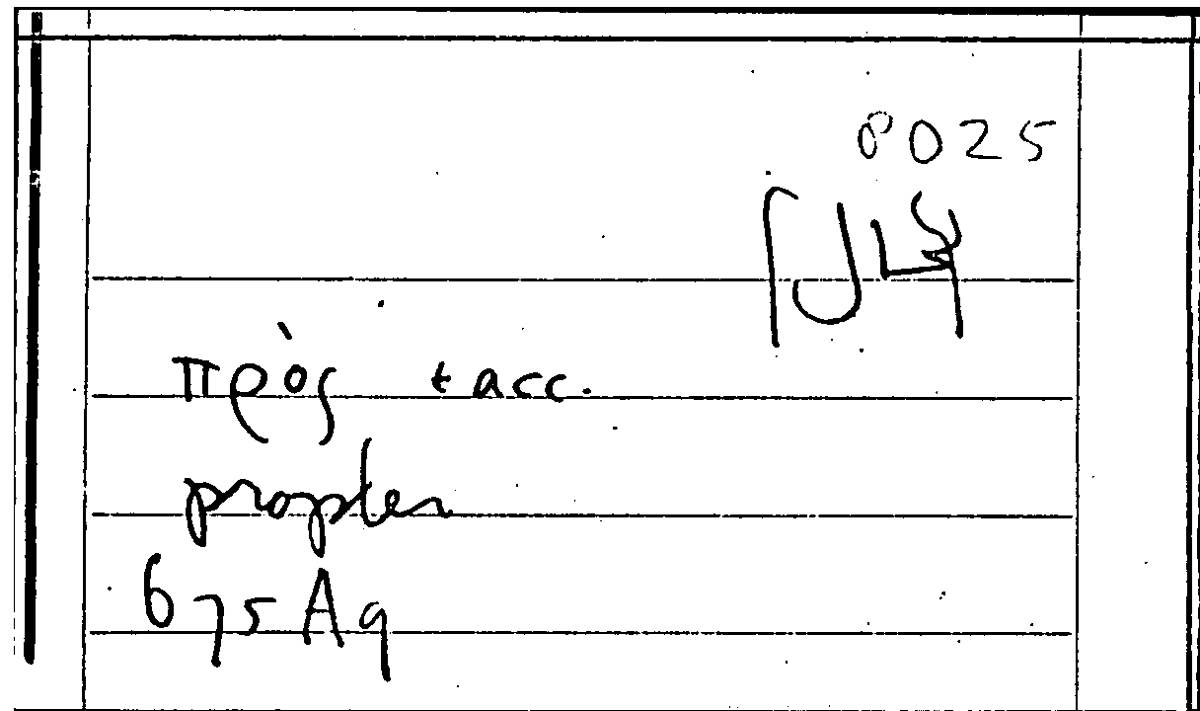 8025
πρὸς + acc.
propter
675 Aq